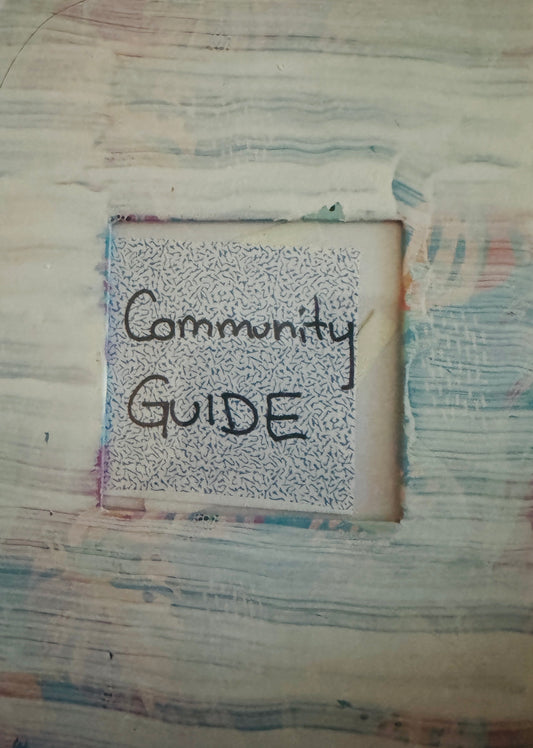 Community
GUIDE